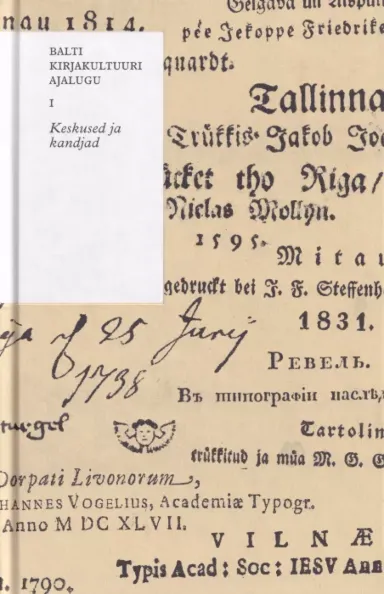 nau 1814.
Jelgawa un Aispu
pée Jekoppe Friedrike
BALTI
KIRJAKULTUURI
AJALUGU
I
Keskused ja
kandjad
quardt.
Tallinna
Trükkis Jakob Joo
ücket tho Riga/
Niclas Mollyn.
1595.
Mitau
gedruckt bei J. F. Steffenh
1831.
25 Juny
1738
РЕВЕЛЬ.
Въ типографіи наслѣ
Tartolin
trükkitud ja müa M. G. G
Dorpati Livonorum,
HANNES VOGELIUS, Academiæ Typogr.
Anno M DC XLVII.
VILNÆ
Typis Acad: Soc: IESV Ann
1790.